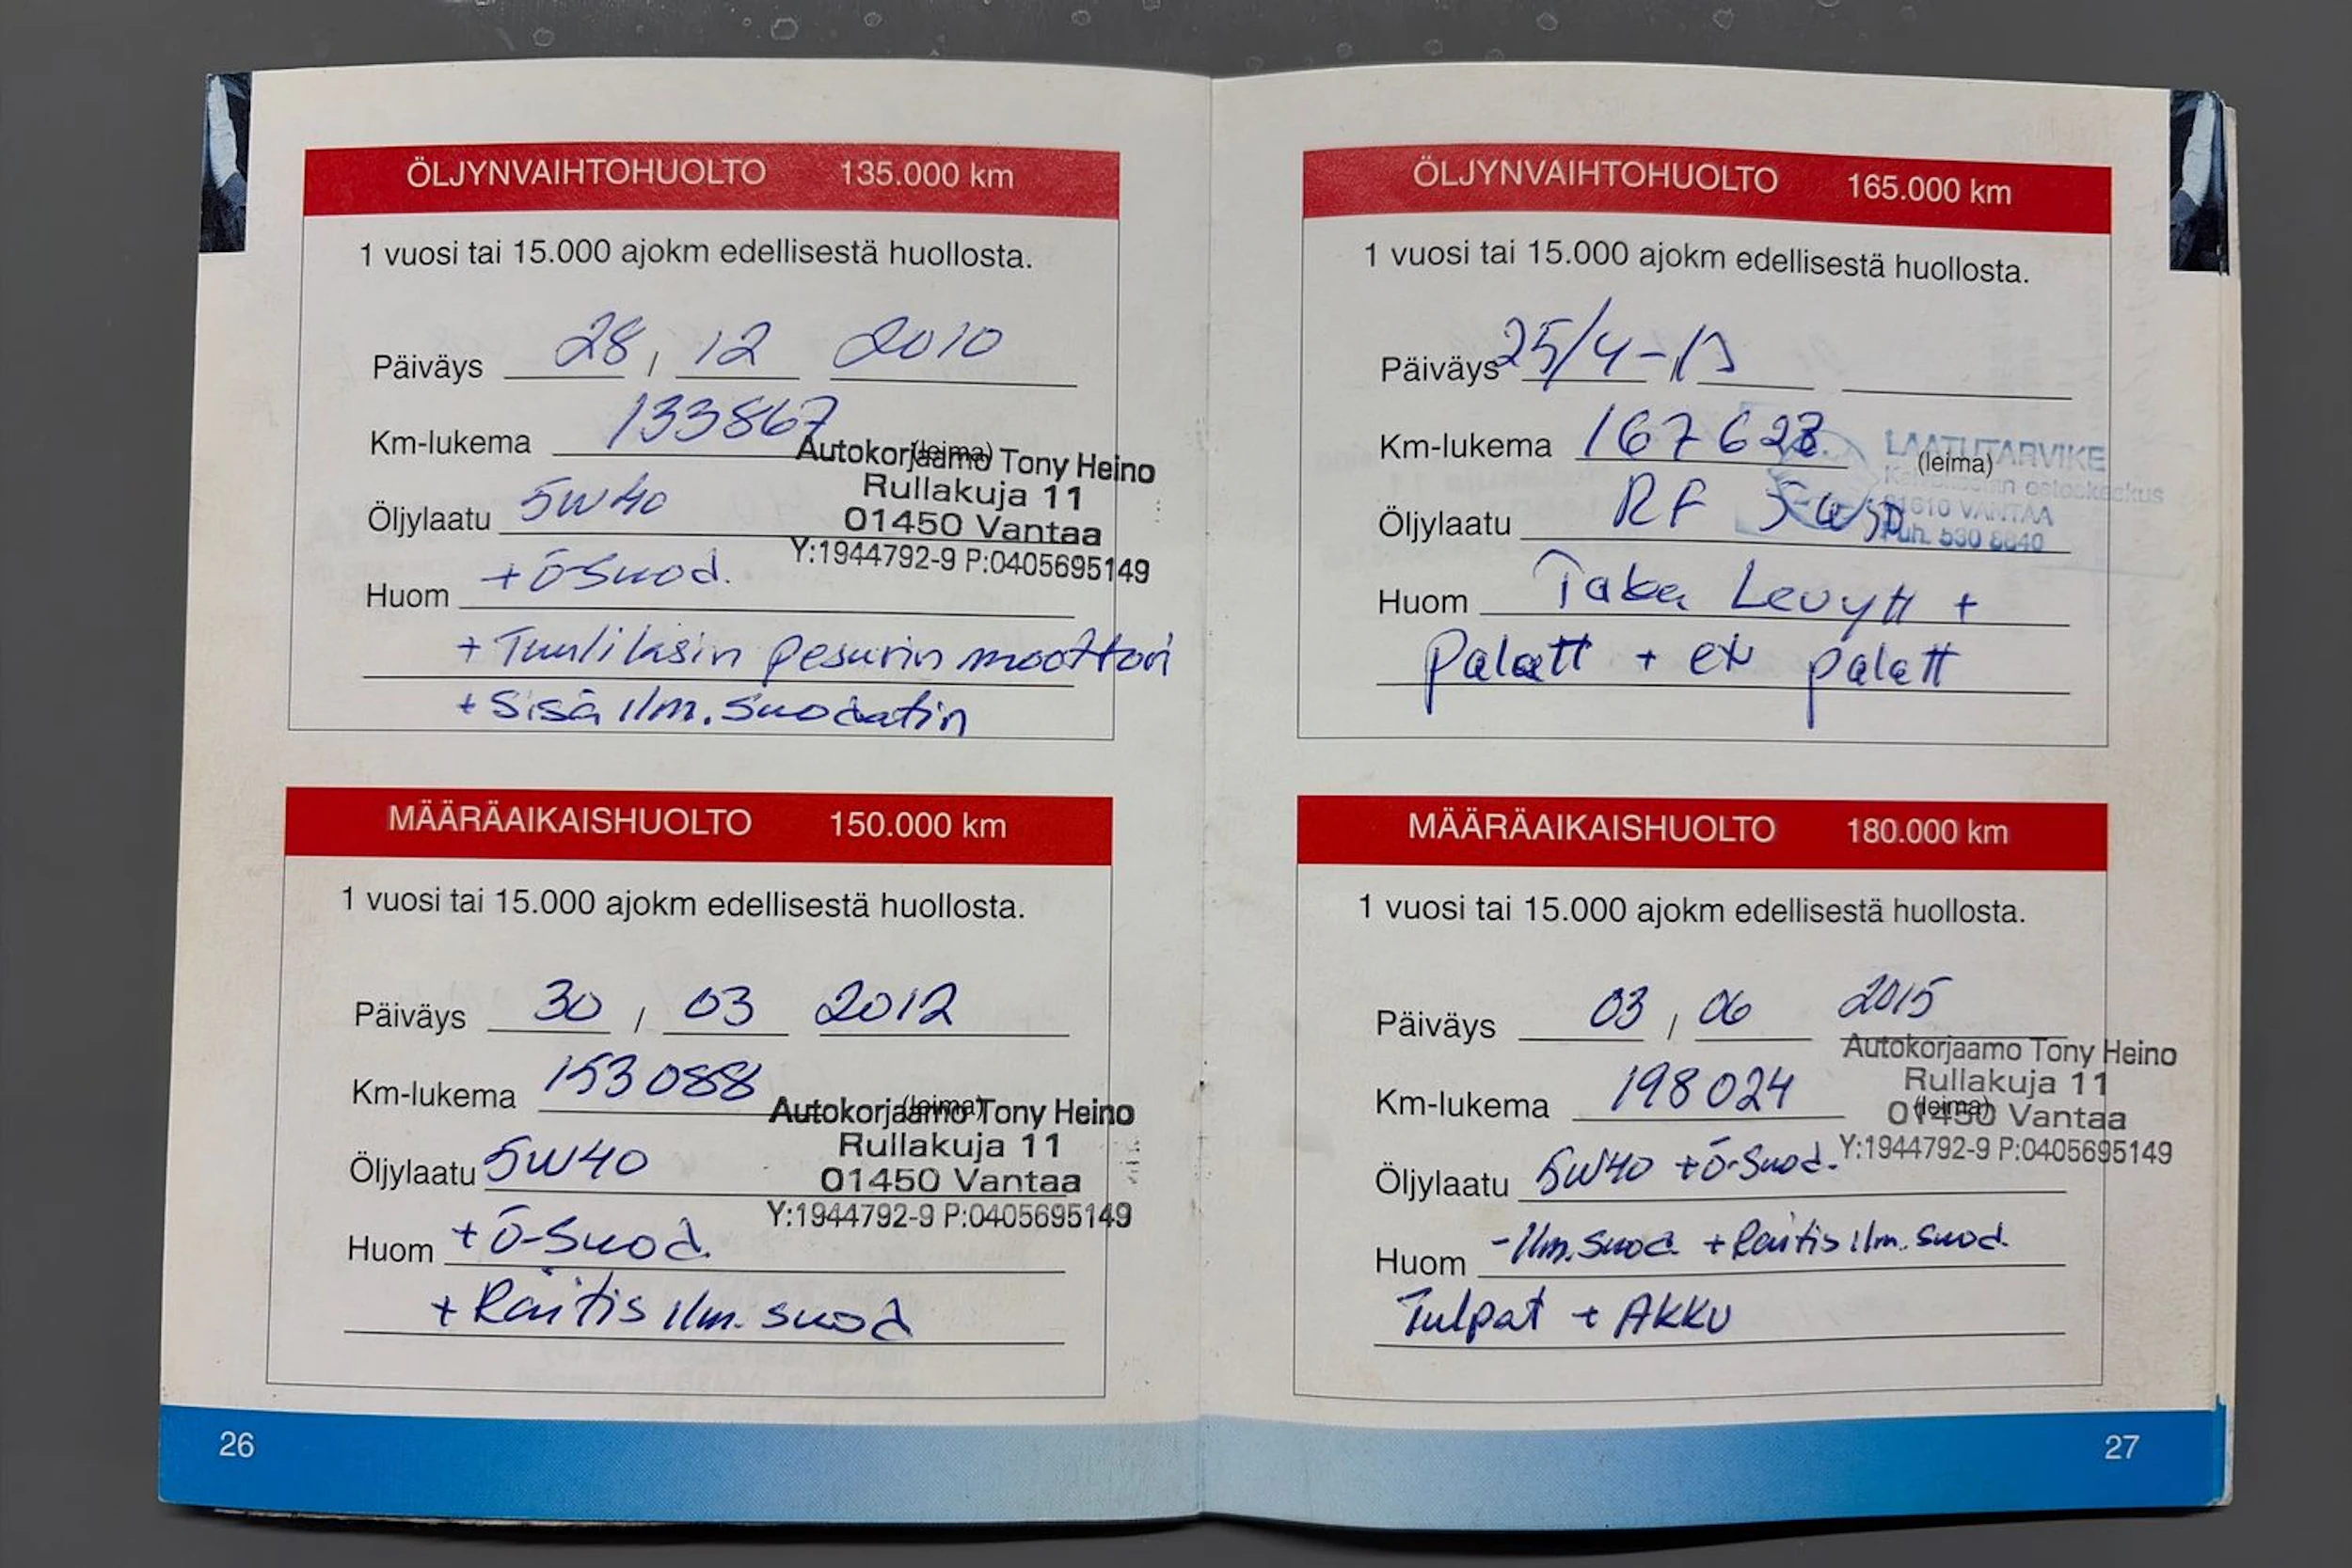 ÖLJYNVAIHTOHUOLTO 135.000 km
1 vuosi tai 15.000 ajokm edellisestä huollosta.
Päiväys 28 / 12 2010
Km-lukema 133867
(leima)
Autokorjaamo Tony Heino
Rullakuja 11
01450 Vantaa
Y:1944792-9 P:0405695149
Öljylaatu 5W40
Huom + ö-suod.
+ Tuulilasin pesurin moottori
+ Sisä ilm. suodatin
MÄÄRÄAIKAISHUOLTO 150.000 km
1 vuosi tai 15.000 ajokm edellisestä huollosta.
Päiväys 30 / 03 2012
Km-lukema 153088
(leima)
Autokorjaamo Tony Heino
Rullakuja 11
01450 Vantaa
Y:1944792-9 P:0405695149
Öljylaatu 5W40
Huom + ö-suod.
+ Raitis ilm. suod
26
ÖLJYNVAIHTOHUOLTO 165.000 km
1 vuosi tai 15.000 ajokm edellisestä huollosta.
Päiväys 25/4-13
Km-lukema
(leima)
LAATUTARVIKE
ostoskeskus
01610 VANTAA
Puh. 530 8840
Öljylaatu RF
Huom Taka Levytt +
palatt + et palatt
MÄÄRÄAIKAISHUOLTO 180.000 km
1 vuosi tai 15.000 ajokm edellisestä huollosta.
Päiväys 03 / 06 2015
Km-lukema 198024
(leima)
Autokorjaamo Tony Heino
Rullakuja 11
01450 Vantaa
Y:1944792-9 P:0405695149
Öljylaatu 5W40 + ö-suod.
Huom - Ilm. suod. + Raitis ilm. suod.
Tulpat + AKKU
27